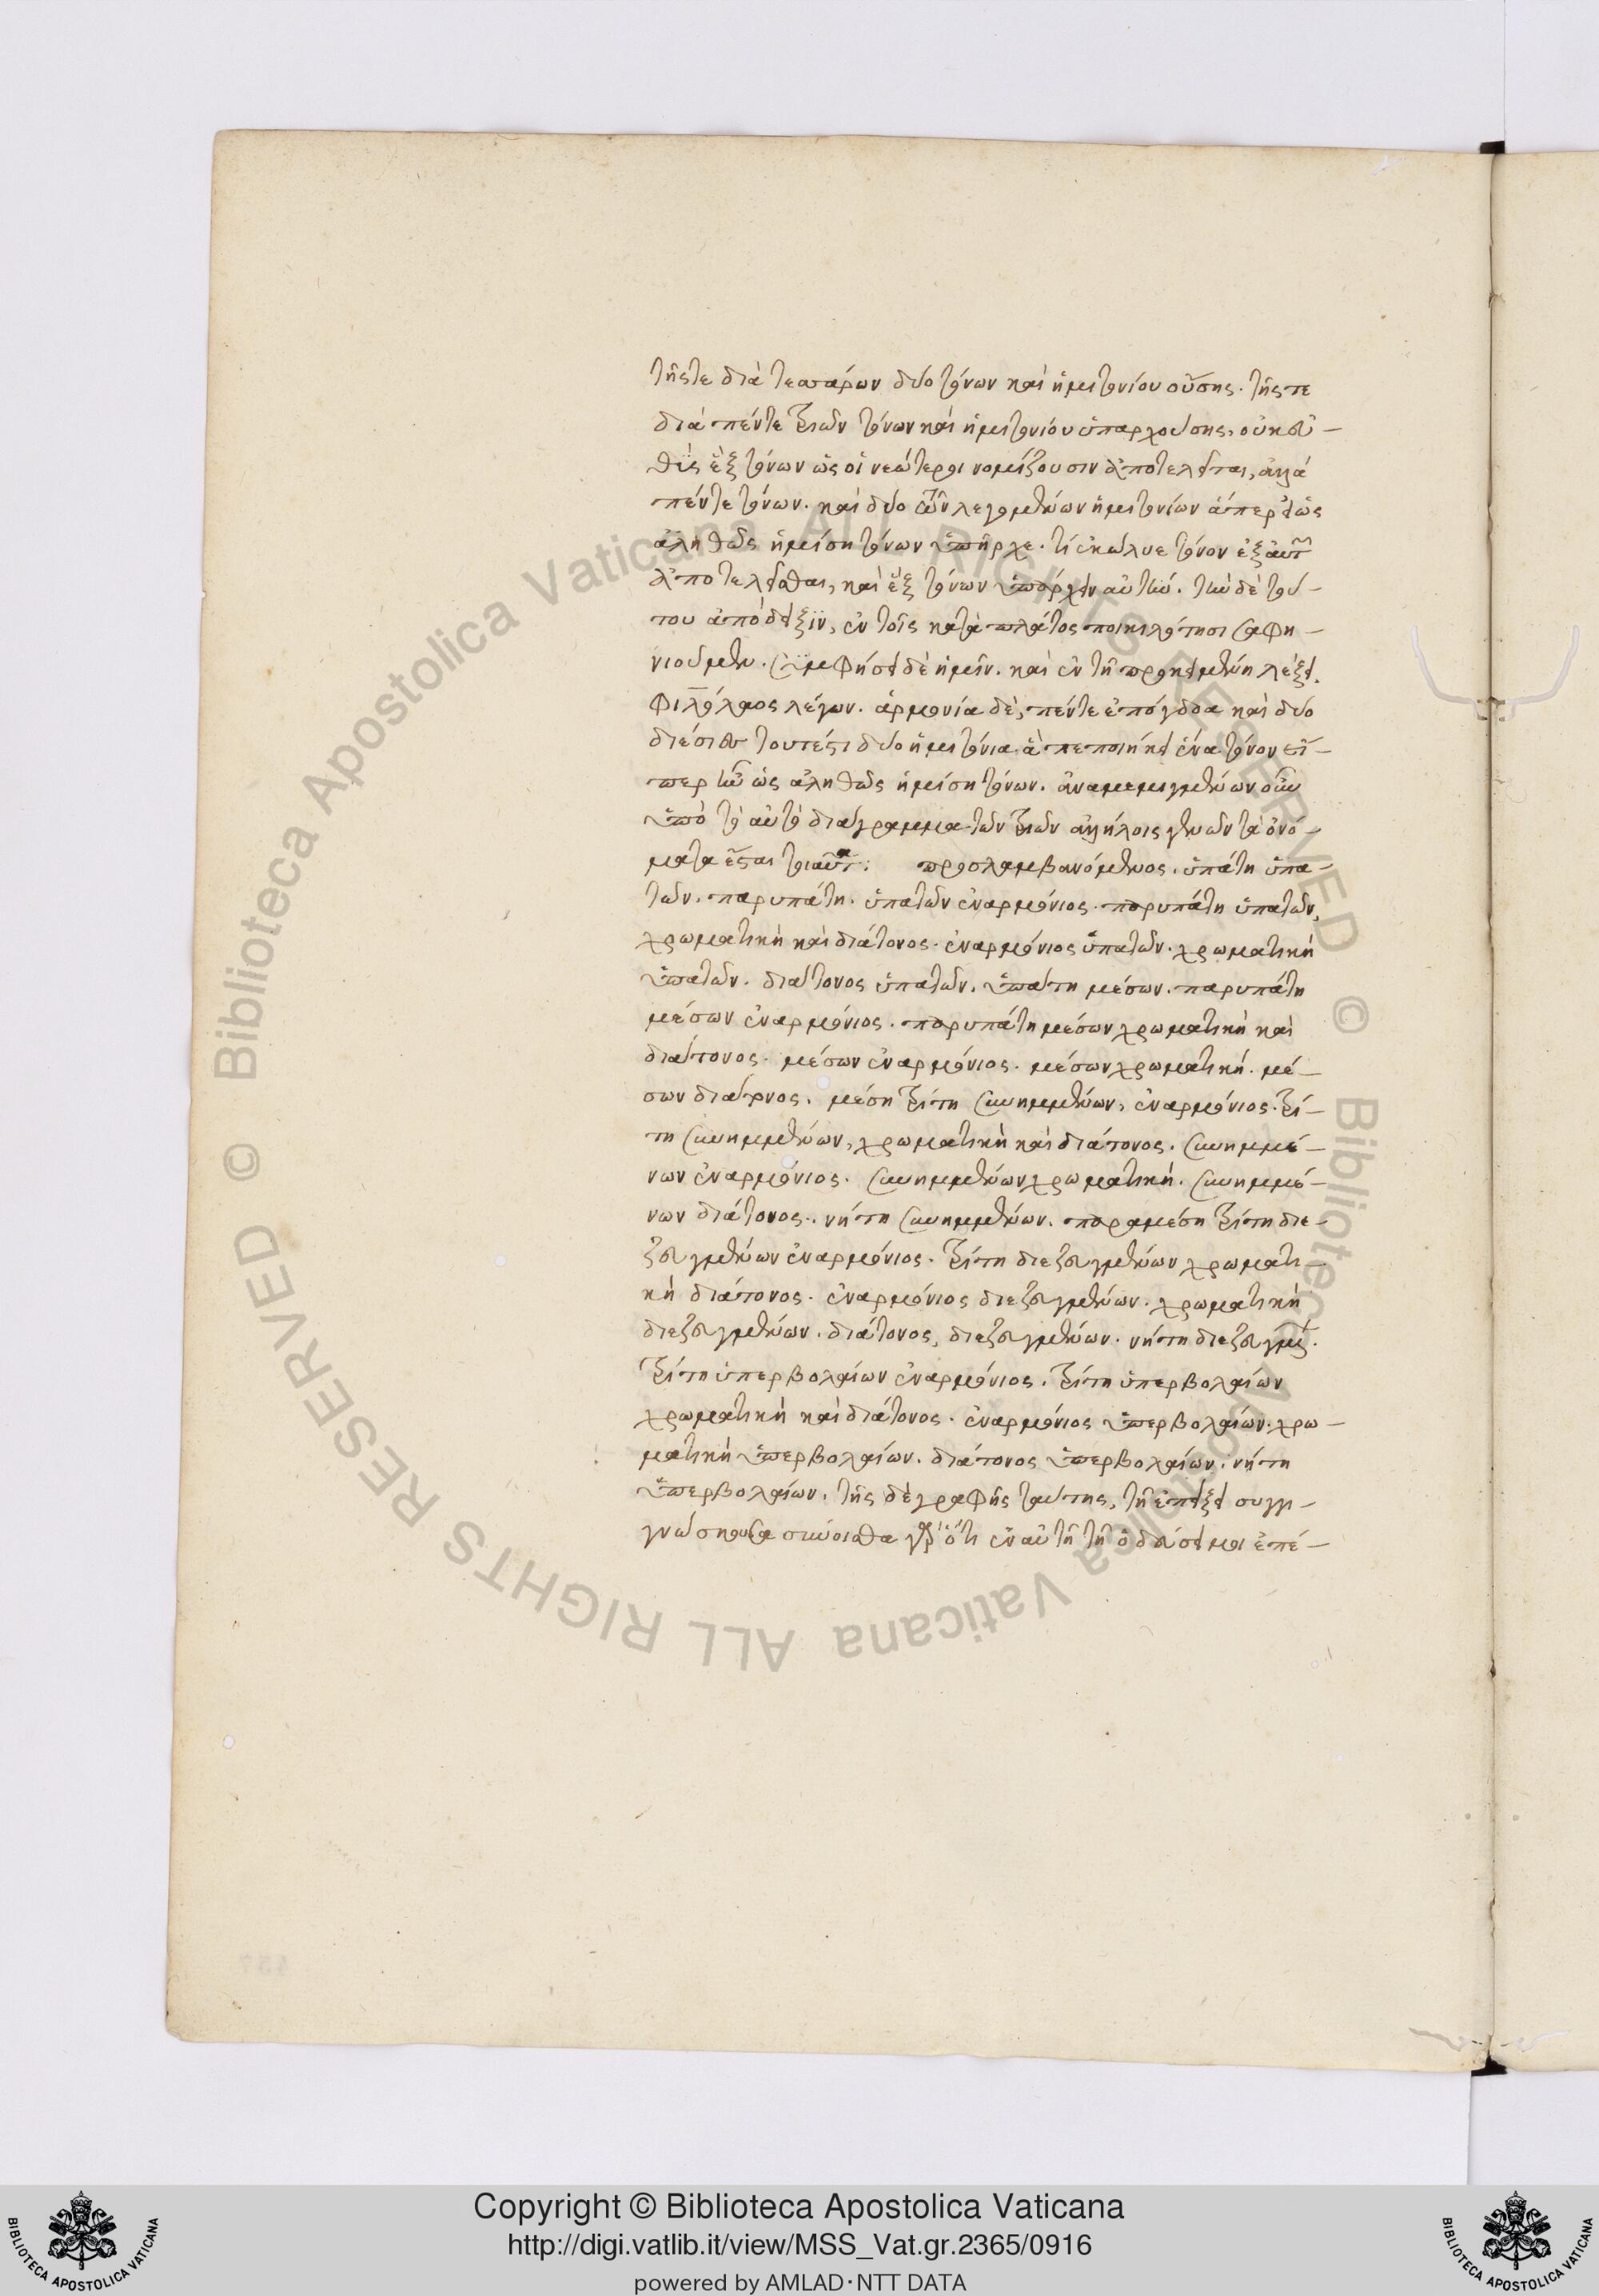 τῆς τε διὰ τεσσάρων δύο τόνων καὶ ἡμιτονίου οὔσης. τῆς τε
διὰ πέντε τριῶν τόνων καὶ ἡμιτονίου ὑπαρχούσης, οὐκ εὐ-
θὺς ἓξ τόνων ὡς οἱ νεώτεροι νομίζουσιν ἀποτελεῖται, ἀλλὰ
πέντε τόνων. καὶ δύο τῶν λεγομένων ἡμιτονίων ἅπερ εἰ ὡς
ἀληθῶς ἡμίση τόνων ὑπῆρχε. τί ἐκώλυε τόνον ἐξ αὐτῶν
ἀποτελεῖσθαι, καὶ ἓξ τόνων ὑπάρχειν αὐτήν. τὴν δὲ τού-
του ἀπόδειξϊν, ἐν τοῖς κατὰ πλάτος ποικιλότησι σαφη-
νιοῦμεν. συμφήσει δὲ ἡμῖν. καὶ ἐν τῇ προκειμένῃ λέξει.
Φιλόλαος λέγων. ἁρμονία δὲ, πέντε ἐπόγδοα καὶ δύο
διέσιες τουτέστι δύο ἡμιτόνια ἃ πεποιήκει ἕνα τόνον εἴ-
περ ἦν ὡς ἀληθῶς ἡμίση τόνων. ἀναμεμιγμένων οὖν
ὑπὸ τὸ αὐτὸ διάγραμμα τῶν τριῶν ἀλλήλοις γενῶν τὰ ὀνό-
ματα ἔσται τοιαῦτα: προσλαμβανόμενος. ὑπάτη ὑπα-
τῶν. παρυπάτη. ὑπατῶν ἐναρμόνιος. παρυπάτη ὑπατῶν,
χρωματικὴ καὶ διάτονος. ἐναρμόνιος ὑπατῶν. χρωματικὴ
ὑπατῶν. διάτονος ὑπατῶν. ὑπάτη μέσων. παρυπάτη
μέσων ἐναρμόνιος. παρυπάτη μέσων χρωματικὴ καὶ
διάτονος. μέσων ἐναρμόνιος. μέσων χρωματική. μέ-
σων διάτονος. μέση τρίτη συνημμένων, ἐναρμόνιος. τρί-
τη συνημμένων, χρωματικὴ καὶ διάτονος. συνημμέ-
νων ἐναρμόνιος. συνημμένων χρωματική. συνημμέ-
νων διάτονος. νήτη συνημμένων. παραμέση τρίτη διε-
ζευγμένων ἐναρμόνιος. τρίτη διεζευγμένων χρωματι-
κὴ διάτονος. ἐναρμόνιος διεζευγμένων. χρωματικὴ
διεζευγμένων. διάτονος, διεζευγμένων. νήτη διεζευγμέν.
τρίτη ὑπερβολαίων ἐναρμόνιος. τρίτη ὑπερβολαίων
χρωματικὴ καὶ διάτονος. ἐναρμόνιος ὑπερβολαίων. χρω-
ματικὴ ὑπερβολαίων. διάτονος ὑπερβολαίων. νήτη
ὑπερβολαίων. τῆς δὲ γραφῆς ταύτης, τῇ ἐπείξει συγγι-
ὅτι ἐν αὐτῇ τῇ ὁδεύσει μοι ἐπέ-
Copyright © Biblioteca Apostolica Vaticana
http://digi.vatlib.it/view/MSS_Vat.gr.2365/0916
powered by AMLAD·NTT DATA
© Biblioteca Apostolica Vaticana ALL RIGHTS RESERVED
© Biblioteca Apostolica Vaticana ALL RIGHTS RESERVED
BIBLIOTECA APOSTOLICA VATICANA
BIBLIOTECA APOSTOLICA VATICANA